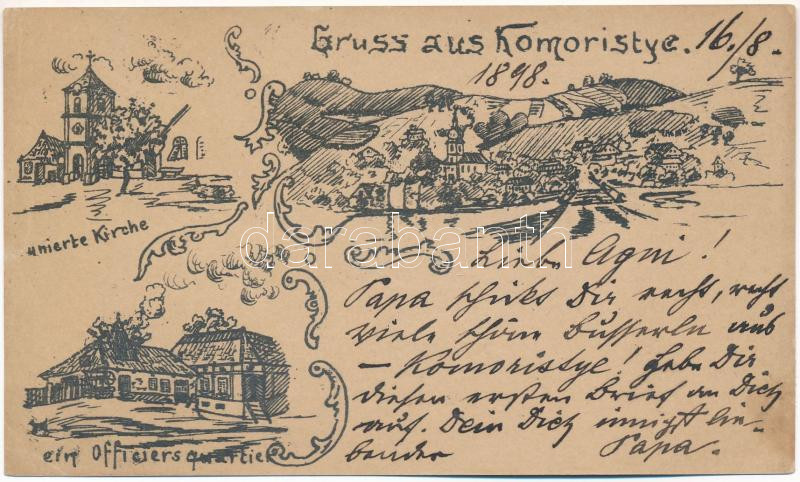 Gruss aus Komoristye. 16./8.
1898.
unierte Kirche
ein Officiersquartier
darabanth
Liebe Agni!
Papa schickt Dir recht, recht
viele schöne Busserln aus
– Komoristye! Hebe Dir
diesen ersten Brief an Dich
auf. Dein Dich innigst lie-
bender Papa.